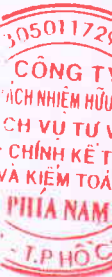 305011729
CÔNG TY
ÁCH NHIỆM HỮU
CH VỤ TƯ V
CHÍNH KẾ T
VÀ KIỂM TOÁ
PHÍA NAM
T.P HỒ C